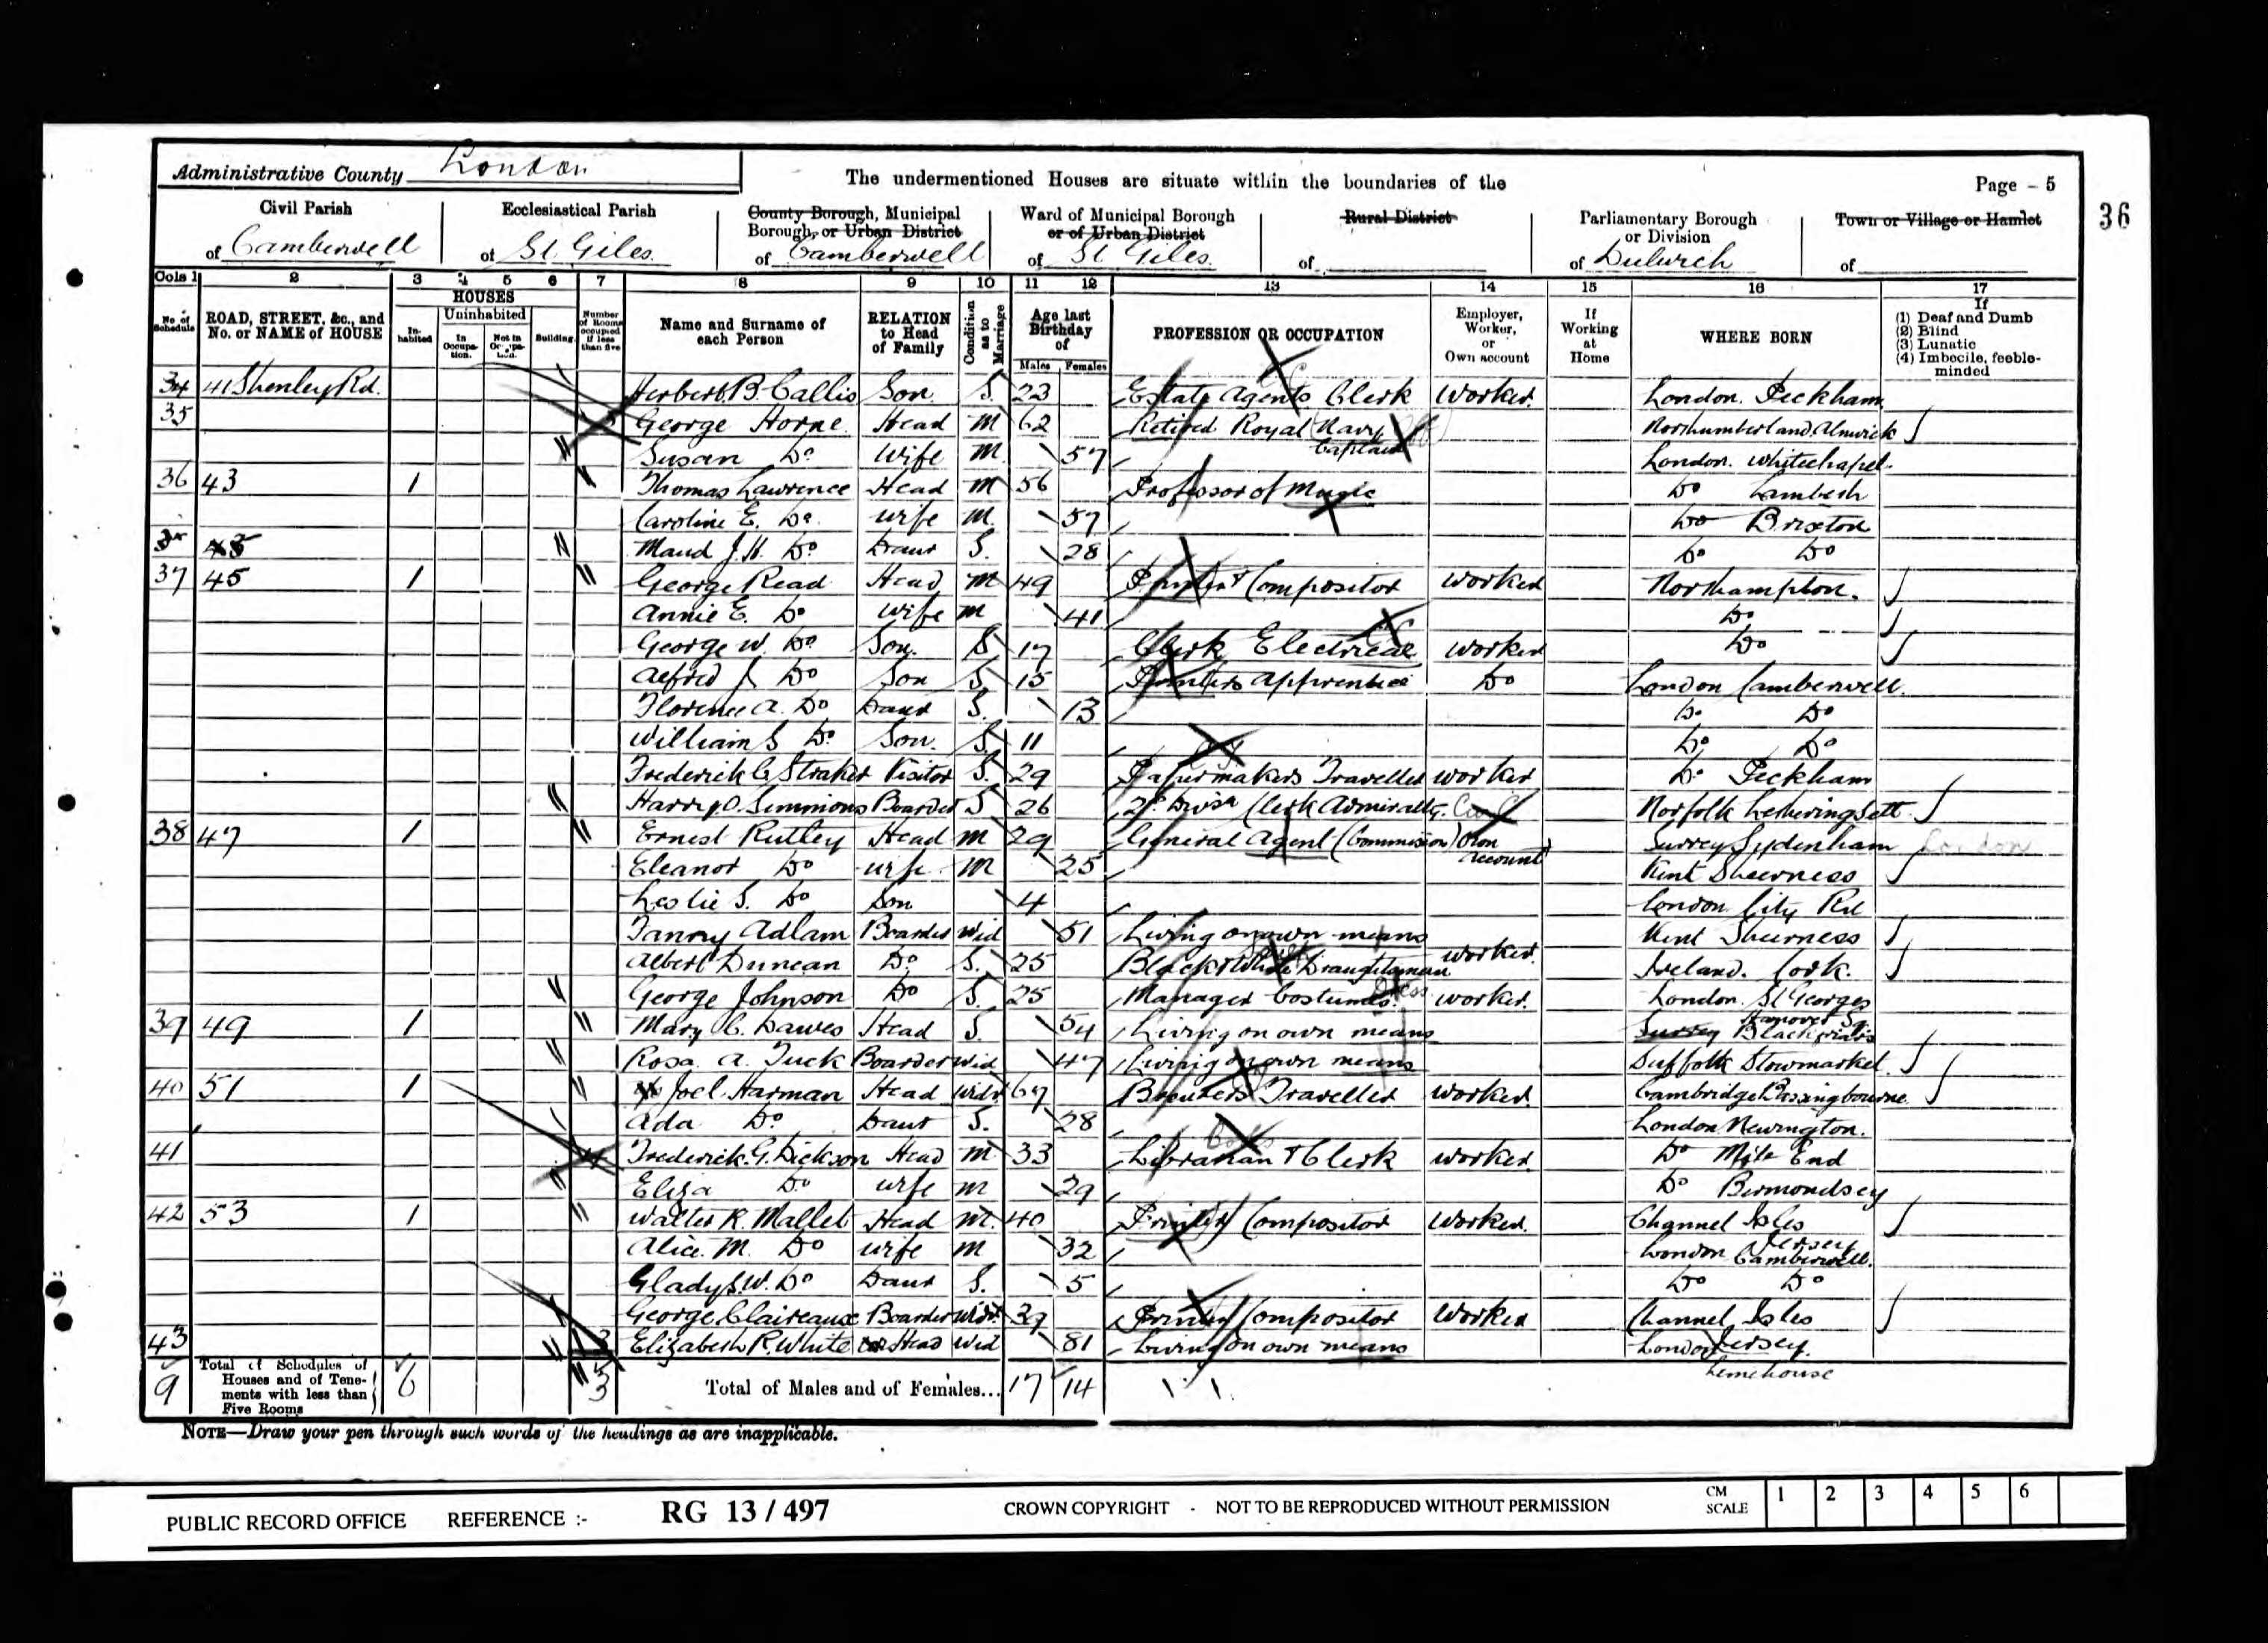 Administrative County London
The undermentioned Houses are situate within the boundaries of the
Page - 5
36
Civil Parish of Camberwell
Ecclesiastical Parish of St. Giles.
County Borough, Municipal Borough, or Urban District of Camberwell
Ward of Municipal Borough or of Urban District of St Giles.
Rural District of
Parliamentary Borough or Division of Dulwich
Town or Village or Hamlet of
Cols 1 2 3 4 5 6 7 8 9 10 11 12 13 14 15 16 17
No. of Schedule
ROAD, STREET, &c., and No. or NAME of HOUSE
HOUSES
In-habited
Uninhabited
In Occupa-tion.
Not in Occupa-tion.
Building.
Number of Rooms occupied if less than five
Name and Surname of each Person
RELATION to Head of Family
Condition as to Marriage
Age last Birthday of
Males Females
PROFESSION OR OCCUPATION
Employer, Worker, or Own account
If Working at Home
WHERE BORN
If
(1) Deaf and Dumb
(2) Blind
(3) Lunatic
(4) Imbecile, feeble-minded
34 41 Shenley Rd. Herbert B. Callis Son. S. 23 Estate Agents Clerk Worker. London. Peckham
35 George Horne. Head M 62 Retired Royal Navy Captain Northumberland, Alnwick
Susan Do Wife M. 57 London. Whitechapel.
36 43 1 Thomas Lawrence Head M 56 Professor of Music Do Lambeth
Caroline E. Do. Wife M. 57 Do Brixton
Maud J. H. Do Daur S. 28 Do Do
37 45 1 George Read Head M 49 Printer Compositor Worker Northampton.
Annie E. Do Wife M 41 Do
George W. Do Son. S 17 Clerk Electrical Worker Do
Alfred J. Do Son S 15 Printers Apprentice Do London Camberwell.
Florence A. Do Daur S. 13 Do Do
William S Do. Son. S. 11 Do Do
Frederick C. Straker Visitor S. 29 Papermakers Traveller Worker Do Peckham
Harry O. Simmons Boarder S 26 2d Divsn Clerk Admiralty. Norfolk Letheringsett.
38 47 1 Ernest Rutley Head M 29 General Agent (Commission) Own account Surrey Sydenham London
Eleanor Do Wife M 25 Kent Sheerness
Leslie S. Do Son 4 London City Rd
Fanny Adlam Boarder Wid 51 Living on own means Kent Sheerness
Albert Duncan Do. S. 25 Black & White Draughtsman Worker. Ireland. Cork.
George Johnson Do S. 25 Manager Costumes. Worker. London. St Georges Hanover Sq.
39 49 1 Mary C. Dawes Head S. 54 Living on own means Surrey Blackfriars
Rosa. A. Tuck Boarder Wid 47 Living on own means Suffolk Stowmarket.
40 51 1 Joel Harman Head Widr 67 Brewers Traveller Worker. Cambridge Bassingbourne
Ada Do. Daur S. 28 London Newington.
41 Frederick. G. Dickson Head M 33 Librarian & Clerk Worker. Do Mile End
Eliza Do Wife M 29 Do Bermondsey
42 53 1 Walter R. Mallet Head M. 40 Printer Compositor Worker. Channel Isles Jersey
Alice. M. Do Wife M 32 London Camberwell.
Gladys. W. Do Daur S. 5 Do Do
George Claireaux Boarder Widr. 39 Printer Compositor Worker Channel Isles Jersey.
43 Elizabeth R. White Head Wid 81 Living on own means London Limehouse
9 Total of Schedules of Houses and of Tene-ments with less than Five Rooms 6 3 Total of Males and of Females... 17 14
NOTE—Draw your pen through such words of the headings as are inapplicable.
PUBLIC RECORD OFFICE REFERENCE :- RG 13 / 497 CROWN COPYRIGHT - NOT TO BE REPRODUCED WITHOUT PERMISSION CM SCALE 1 2 3 4 5 6